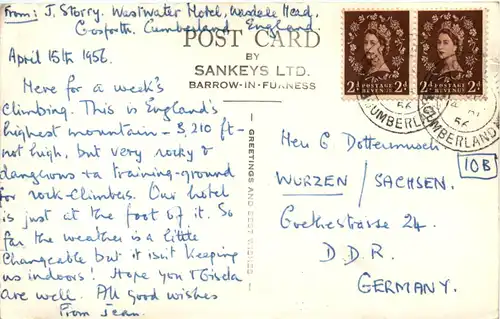 From: J. Storry. Westwater Hotel, Wasdale Head,
Gosforth, Cumberland, England.
POST CARD
BY
SANKEYS LTD.
BARROW-IN-FURNESS
April 15th 1956.
Here for a week's
climbing. This is England's
highest mountain - 3,210 ft -
not high, but very rocky &
dangerous - a training-ground
for rock-climbers. Our hotel
is just at the foot of it. So
far the weather is a little
changeable but it isn't keeping
us indoors! Hope you & Gisela
are well. All good wishes
from Jean.
GREETINGS AND BEST WISHES
2d POSTAGE REVENUE 2d
2d POSTAGE REVENUE 2d
CUMBERLAND
CUMBERLAND
Herr G Dottermusch
10B
WURZEN / SACHSEN.
Goethestrasse 24.
D. D. R.
GERMANY.